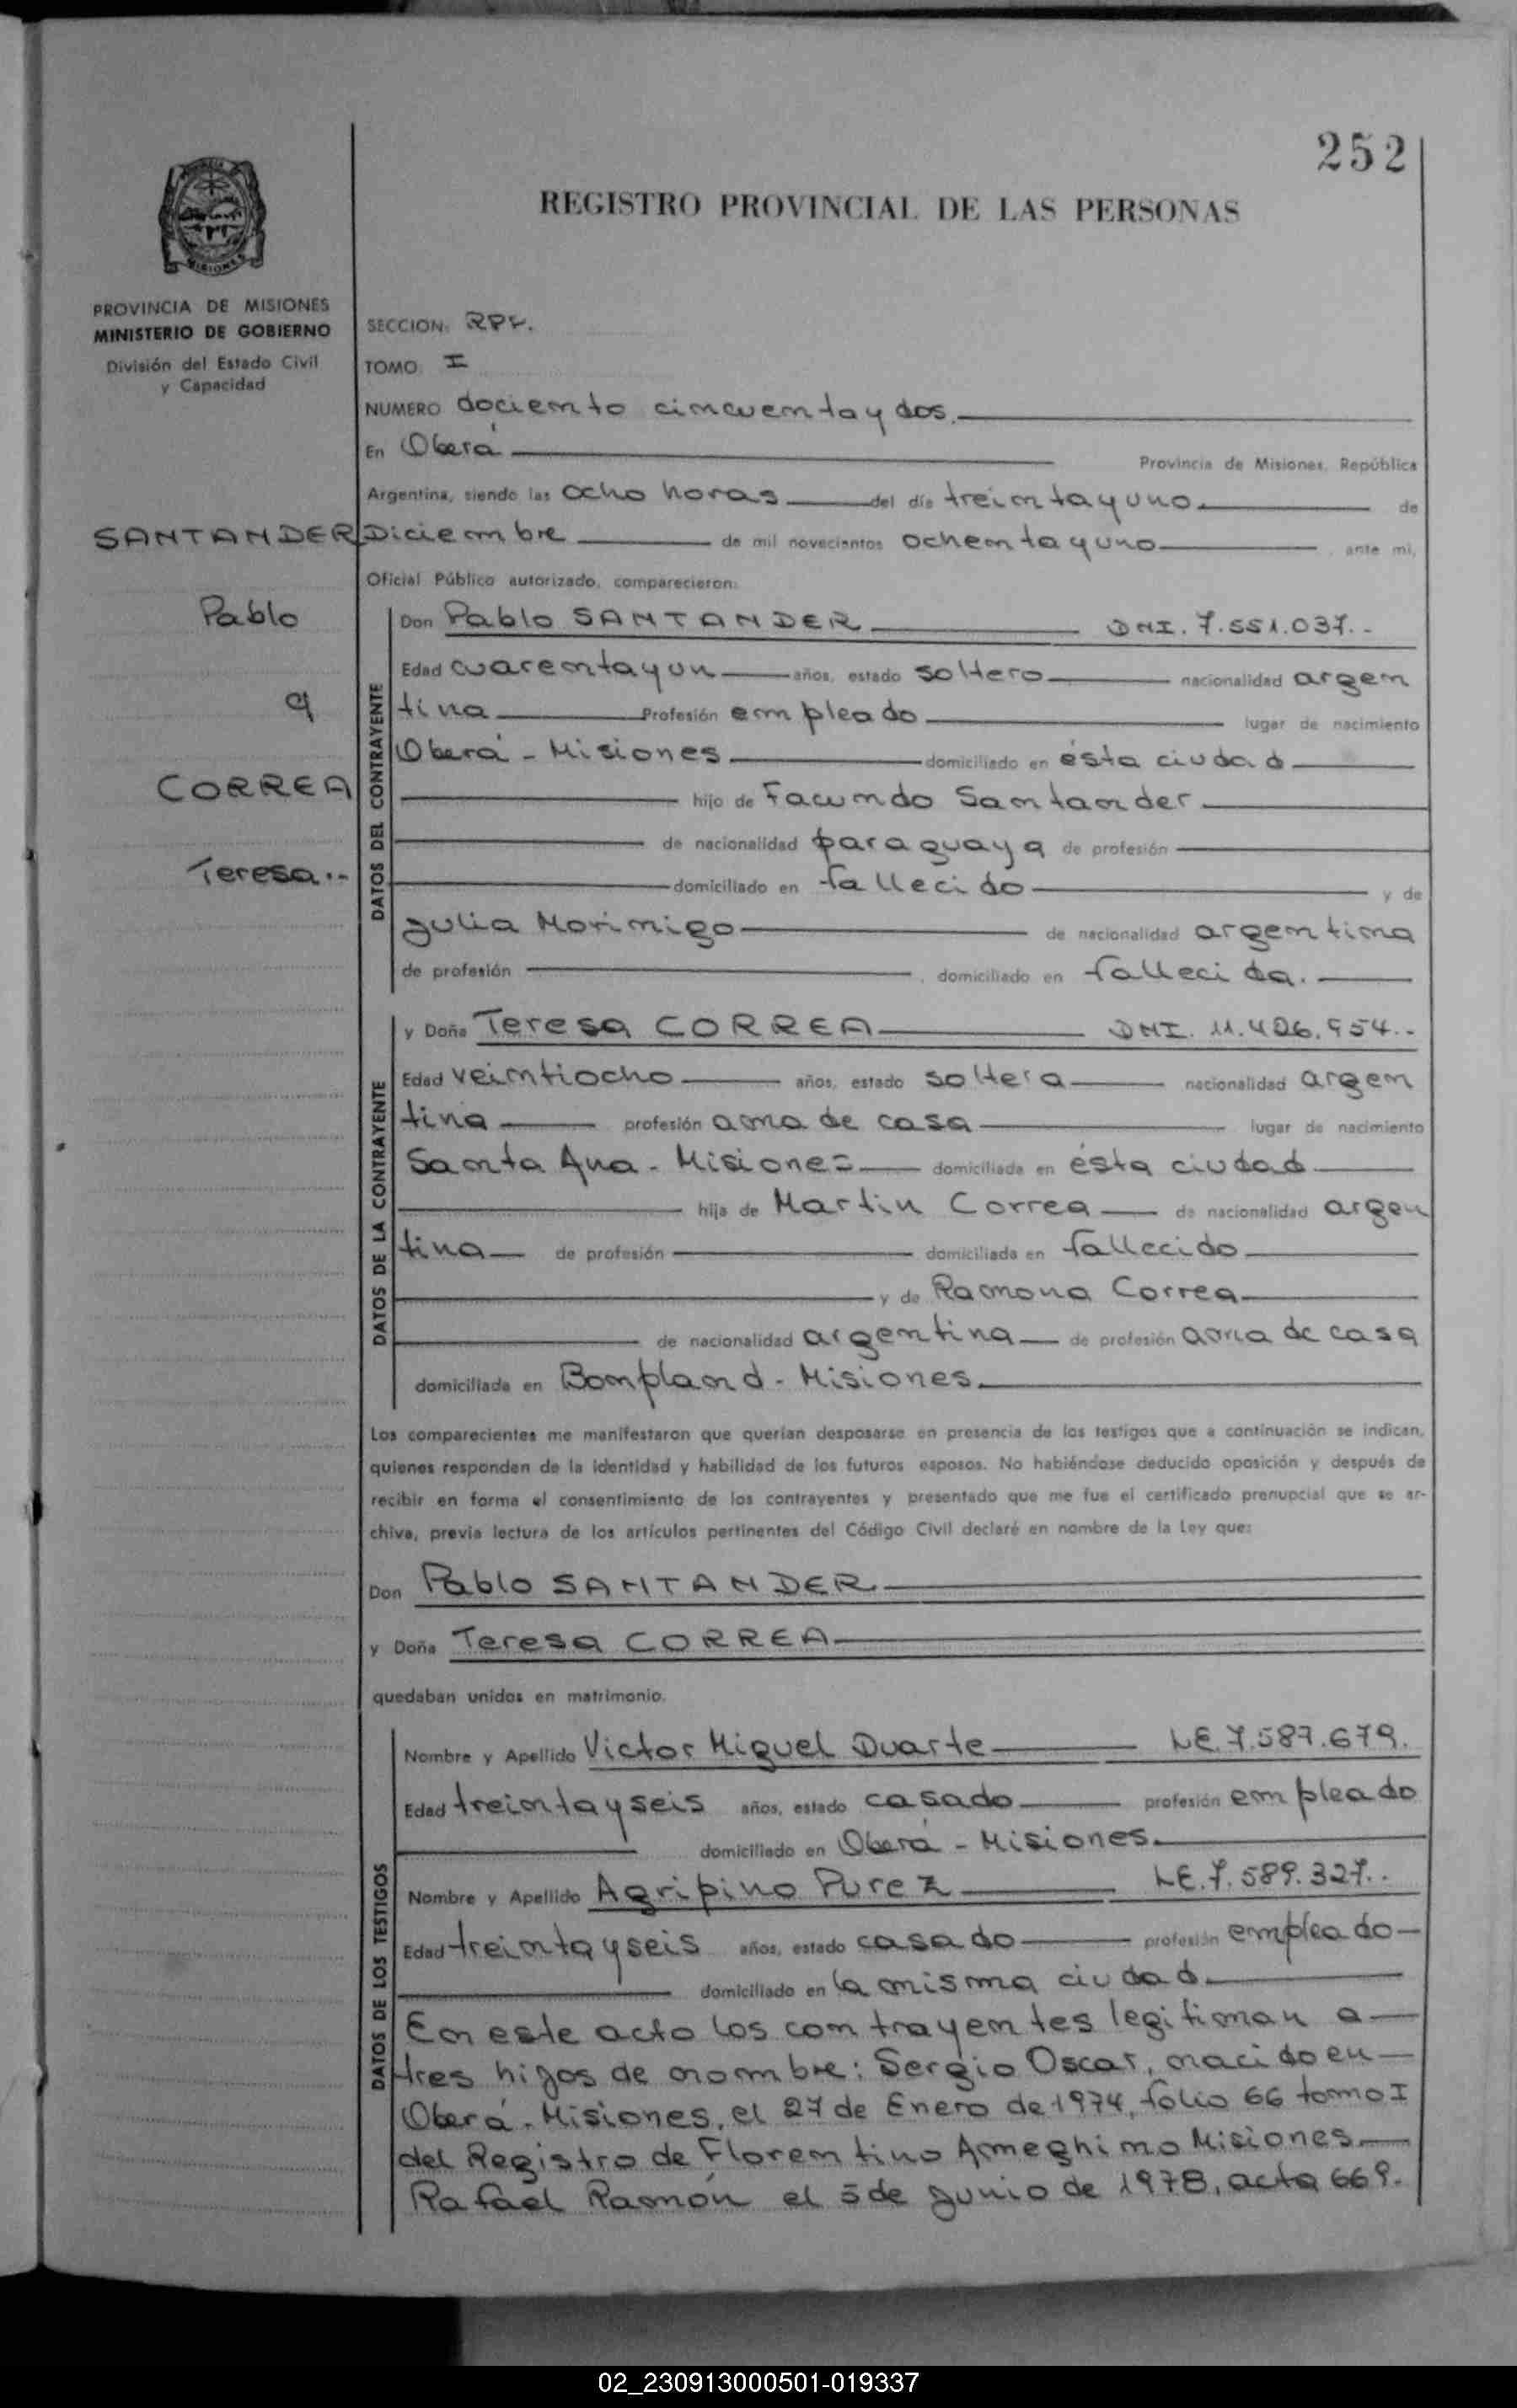 252
REGISTRO PROVINCIAL DE LAS PERSONAS
MISIONES
PROVINCIA DE MISIONES
MINISTERIO DE GOBIERNO
División del Estado Civil
y Capacidad
SECCION:
TOMO I
NUMERO dociento cincuenta y dos.
En Oberá Provincia de Misiones, República
Argentina, siendo las ocho horas del día treinta y uno de
SANTANDER
Diciembre de mil novecientos ochenta y uno, ante mi,
Oficial Público autorizado, comparecieron:
Pablo
y
CORREA
Teresa.-
DATOS DEL CONTRAYENTE
Don Pablo SANTANDER DNI. 7.551.037.-
Edad cuarenta y un años, estado soltero nacionalidad argen
tina Profesión empleado lugar de nacimiento
Oberá - Misiones domiciliado en ésta ciudad
hijo de Facundo Santander
de nacionalidad paraguaya de profesión
domiciliado en fallecido y de
Julia Morinigo de nacionalidad argentina
de profesión , domiciliado en fallecida.
DATOS DE LA CONTRAYENTE
y Doña Teresa CORREA DNI. 11.406.954.-
Edad veintiocho años, estado soltera nacionalidad argen
tina profesión ama de casa lugar de nacimiento
Santa Ana - Misiones domiciliada en ésta ciudad
hija de Martin Correa de nacionalidad argen
tina de profesión domiciliada en fallecido
y de Ramona Correa
de nacionalidad argentina de profesión ama de casa
domiciliada en Bompland - Misiones.
Los comparecientes me manifestaron que querían desposarse en presencia de los testigos que a continuación se indican,
quienes responden de la identidad y habilidad de los futuros esposos. No habiéndose deducido oposición y después de
recibir en forma el consentimiento de los contrayentes y presentado que me fue el certificado prenupcial que se ar-
chiva, previa lectura de los artículos pertinentes del Código Civil declaré en nombre de la Ley que:
Don Pablo SANTANDER
y Doña Teresa CORREA
quedaban unidos en matrimonio.
DATOS DE LOS TESTIGOS
Nombre y Apellido Victor Miguel Duarte LE. 7.587.679.
Edad treinta y seis años, estado casado profesión empleado
domiciliado en Oberá - Misiones.
Nombre y Apellido Agripino Purez LE. 7.589.327.-
Edad treinta y seis años, estado casado profesión empleado
domiciliado en la misma ciudad.
En este acto los contrayentes legitiman a
tres hijos de nombre: Sergio Oscar, nacido en
Oberá - Misiones, el 27 de Enero de 1974, folio 66 tomo I
del Registro de Florentino Ameghino Misiones
Rafael Ramón el 5 de Junio de 1978, acta 669.
02_230913000501-019337